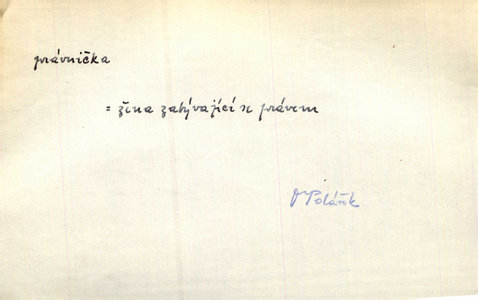 právnička
= žena zabývající se právem
J Polášek